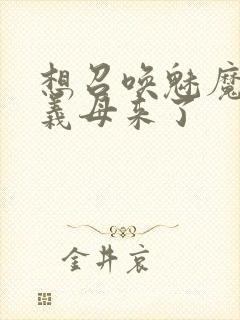 想召唤魅魔
义母来了
金井哀